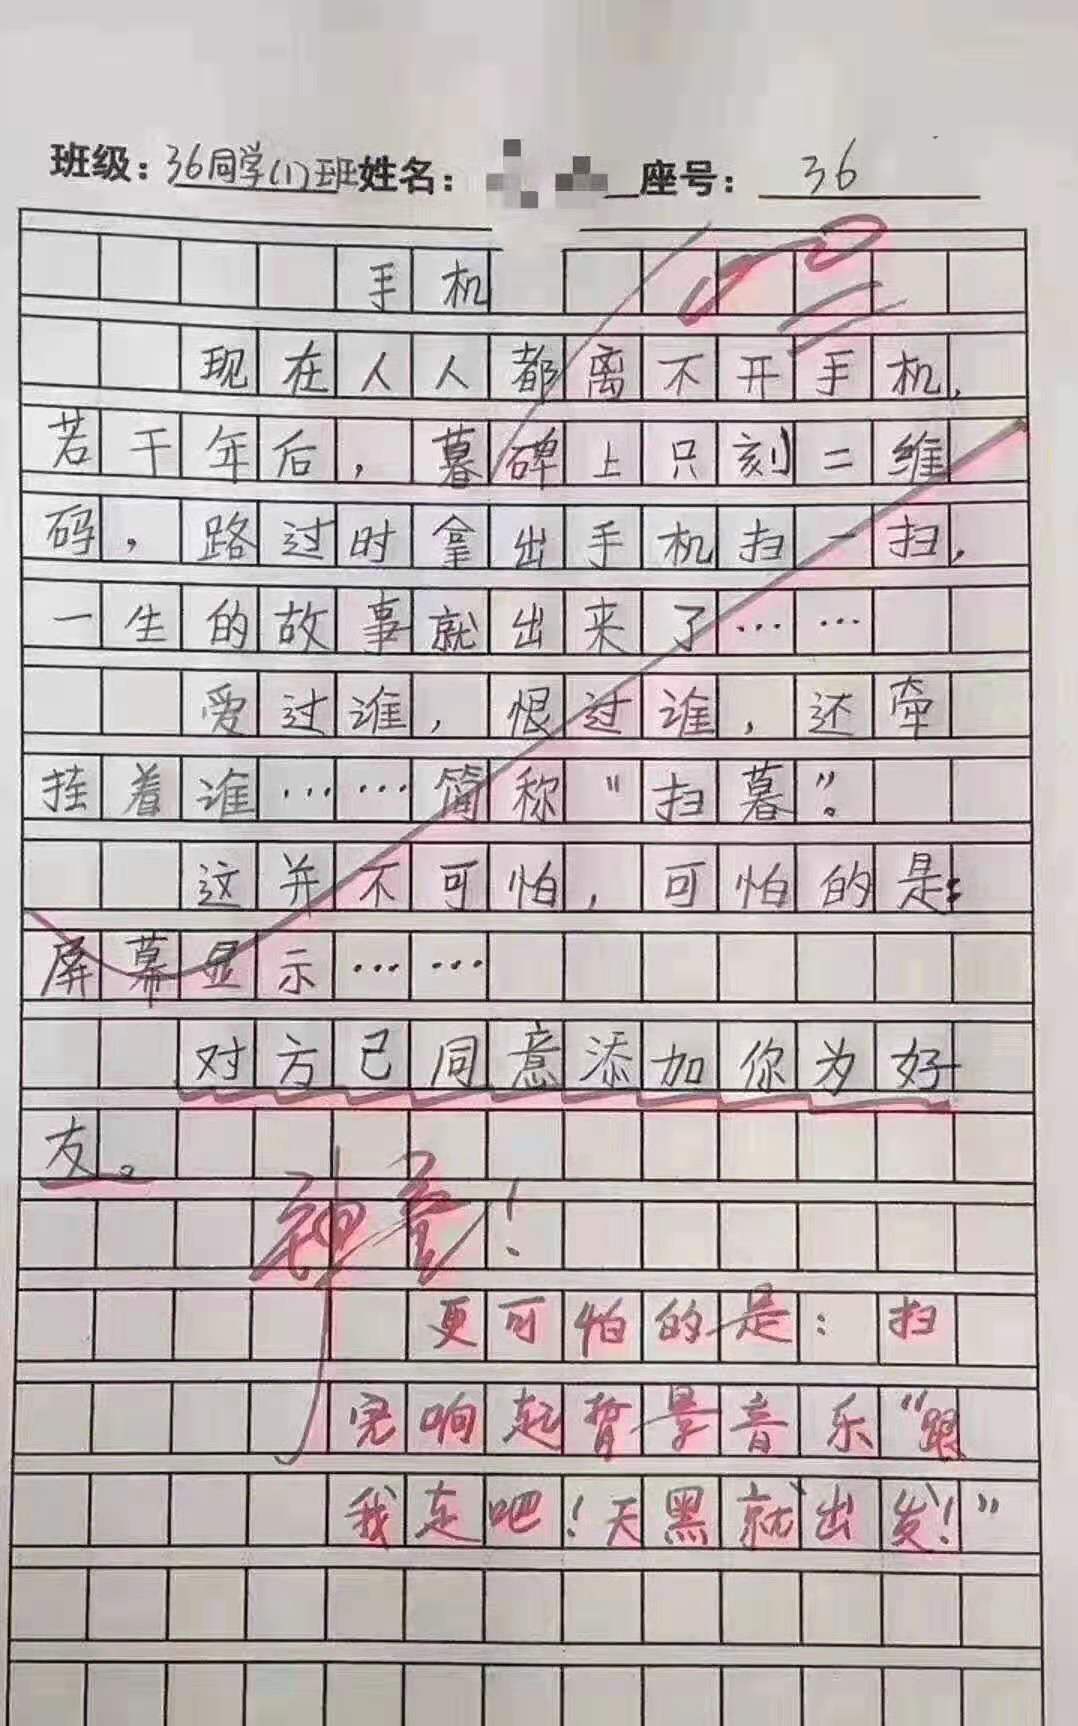 班级：36同学(1)班姓名：座号：36
手机
现在人人都离不开手机，
若干年后，暮碑上只刻二维
码，路过时拿出手机扫一扫，
一生的故事就出来了……
爱过谁，恨过谁，还牵
挂着谁……简称“扫暮”。
这并不可怕，可怕的是：
屏幕显示……
对方已同意添加你为好
友。
神童！
更可怕的是：扫
完响起背景音乐“跟
我走吧！天黑就出发！”